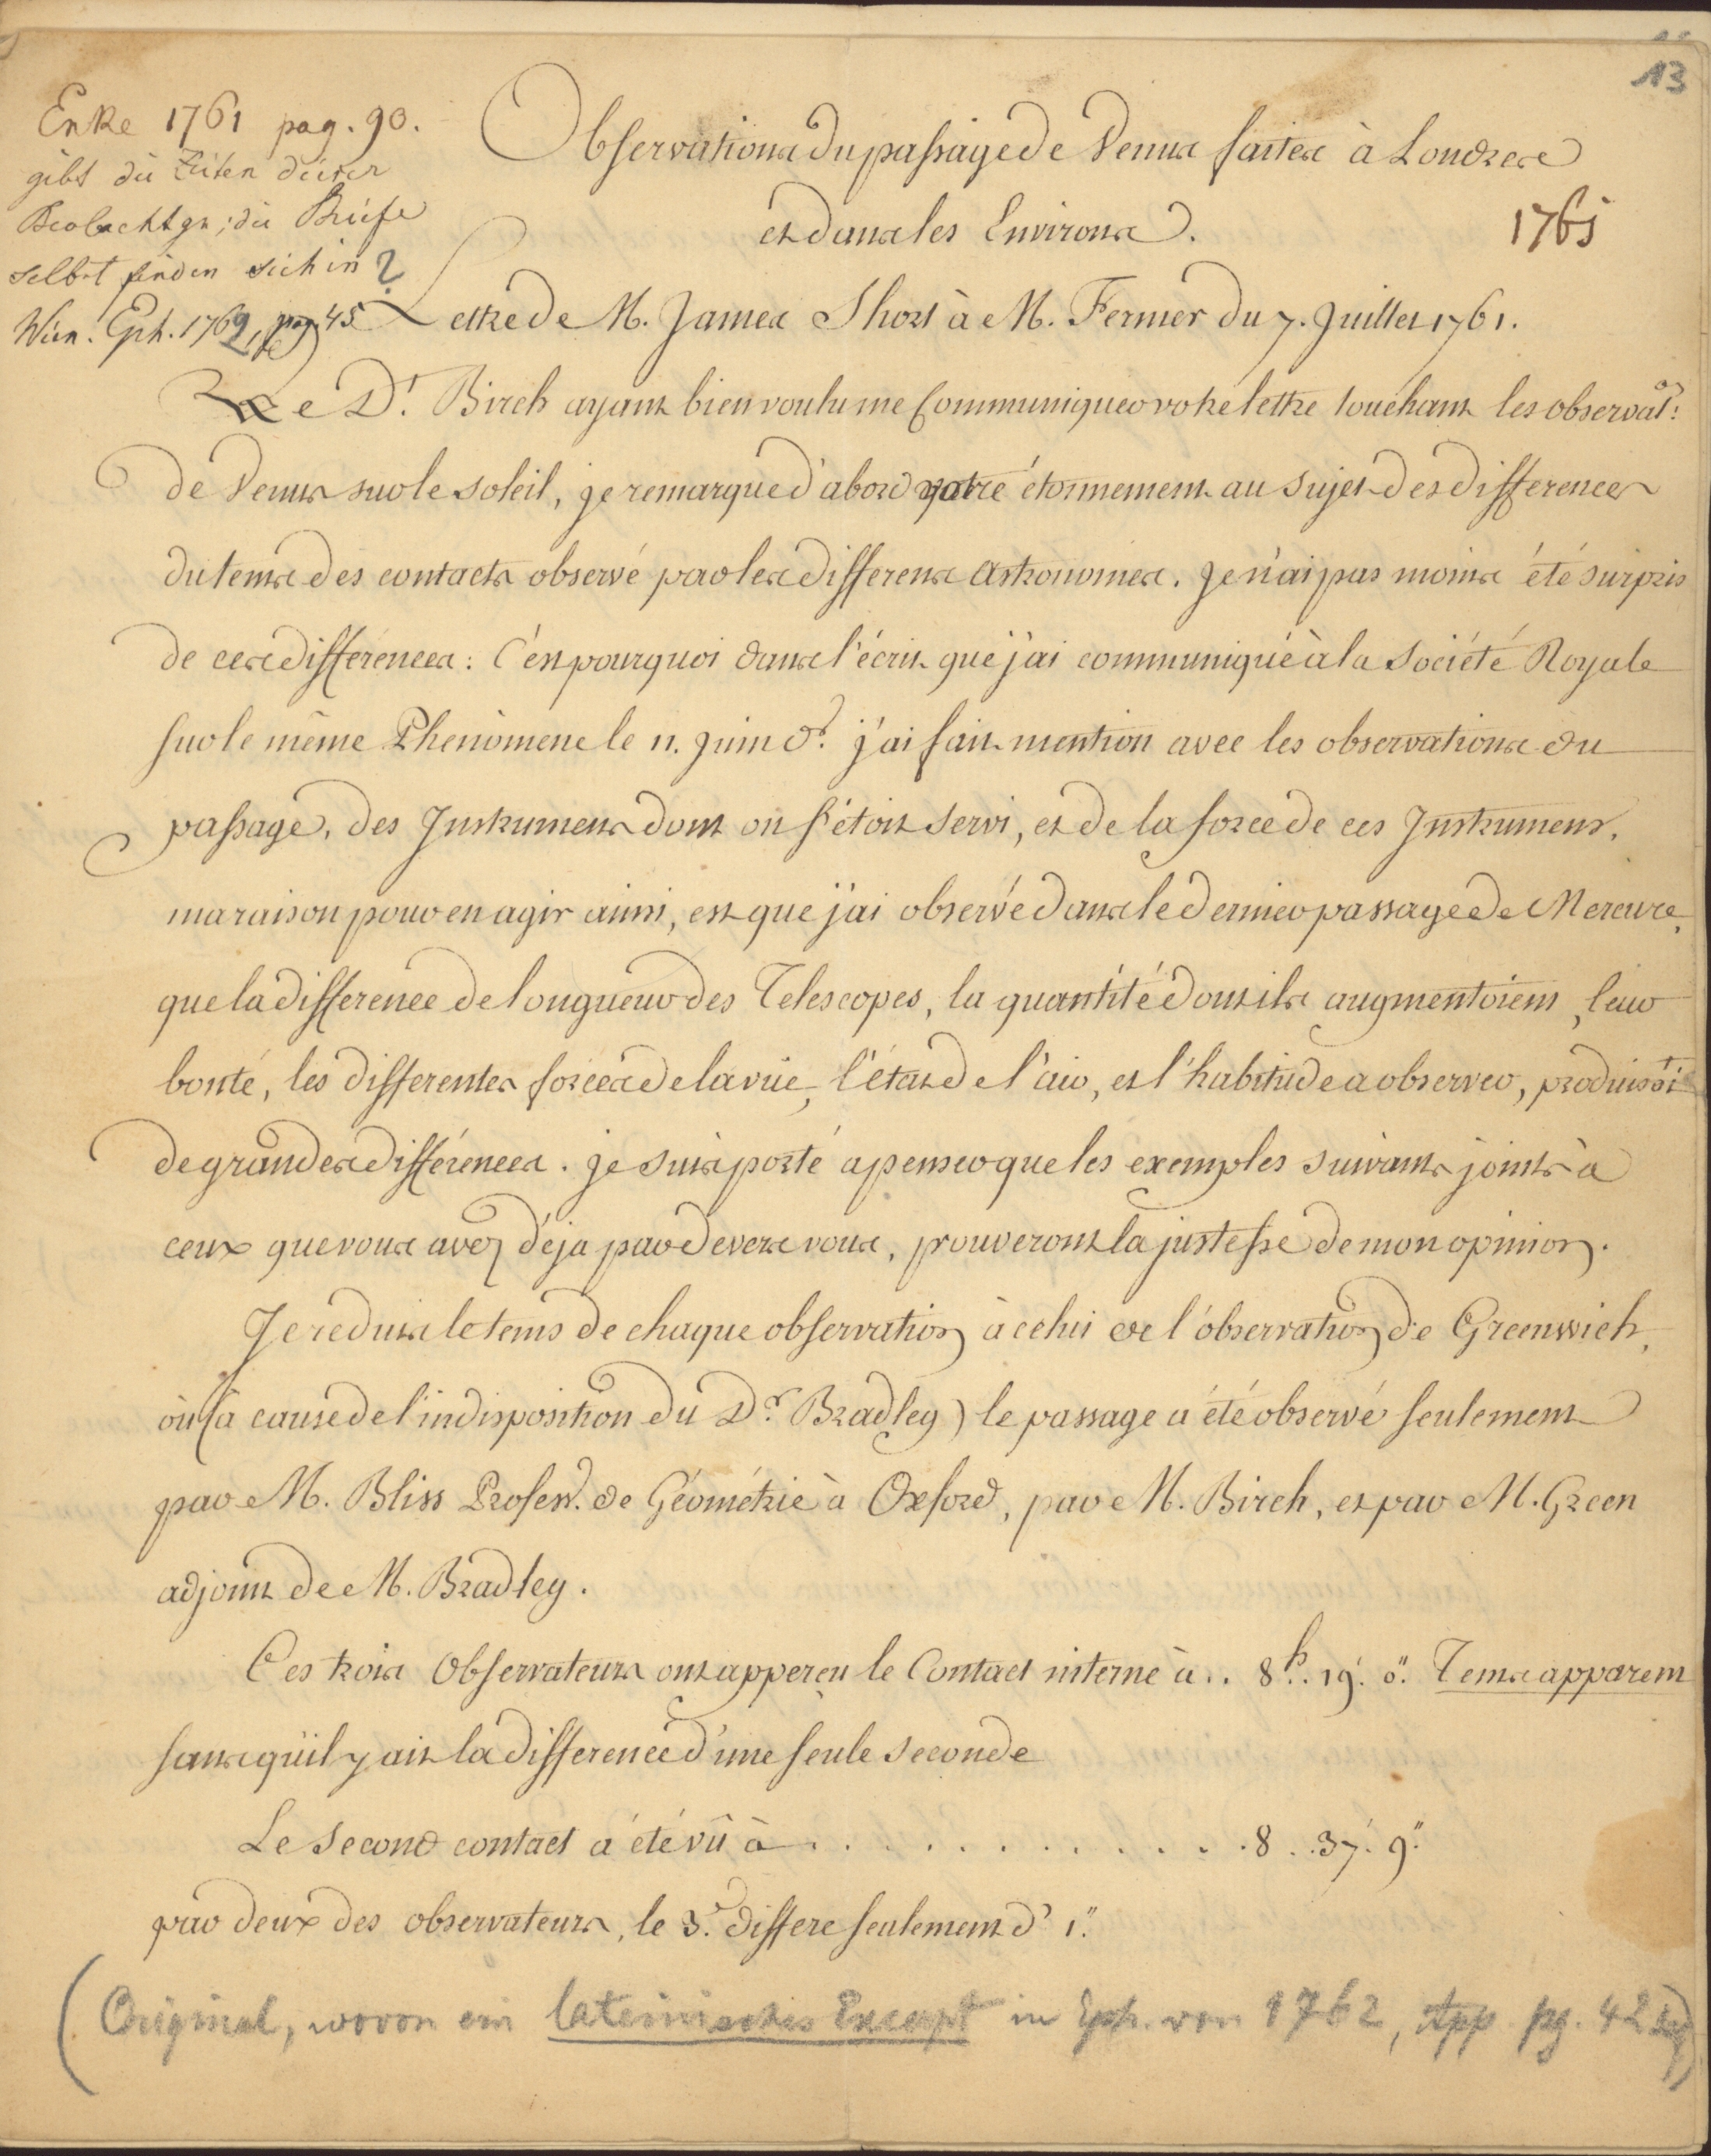 13
Enke 1761 pag. 90.
gibt die Zeiten dieser
Beobachtgn; die Briefe
selbst finden sich in ?
Wien. Eph. 1762, pag. 45
Observations du passage de Venus faites à Londres
et dans les Environs.
1761
Lettre de M. James Short à M. Fermer du 7. Juillet 1761.
Le Dr. Birch ayant bien voulu me Communiquer votre lettre touchant les observat:
de Venus sur le soleil, je remarque d'abord votre étonnement au sujet des differences
du tems des contacts observé par les differens Astronomes. Je n'ai pas moins été surpris
de ces différences: C'est pourquoi dans l'écrit que j'ai communiqué à la Société Royale
sur le même Phenomene le 11. Juin dr. j'ai fait mention avec les observations du
passage, des Instrumens dont on s'étoit servi, et de la force de ces Instrumens,
ma raison pour en agir ainsi, est que j'ai observé dans le dernier passage de Mercure,
que la difference de longueur des Telescopes, la quantité dont ils augmentoient, leur
bonté, les differentes forces de la vûe, l'état de l'air, et l'habitude a observer, produisoit
de grandes différences. je suis porté a penser que les exemples suivants joints à
ceux que vous avez déja par devers vous, prouveront la justesse de mon opinion.
Je reduis le tems de chaque observation à celui de l'observation de Greenwich,
où (à cause de l'indisposition du Dr. Bradley) le passage a été observé seulement
par M. Bliss Profesr. de Géométrie à Oxford, par M. Birch, et par M. Green
adjoint de M. Bradley.
Ces trois Observateurs ont apperçu le Contact interne à .. 8h. 19'. 0". Tems apparent
sans qu'il y ait la difference d'une seule seconde
Le Second contact a été vû à . . . . . . . . . . . . . 8 . . 37'. 9".
par deux des observateurs, le 3e. differe seulement d' 1".
(Original, wovon ein lateinisches Excerpt in Eph. von 1762, App pg. 42 sq)